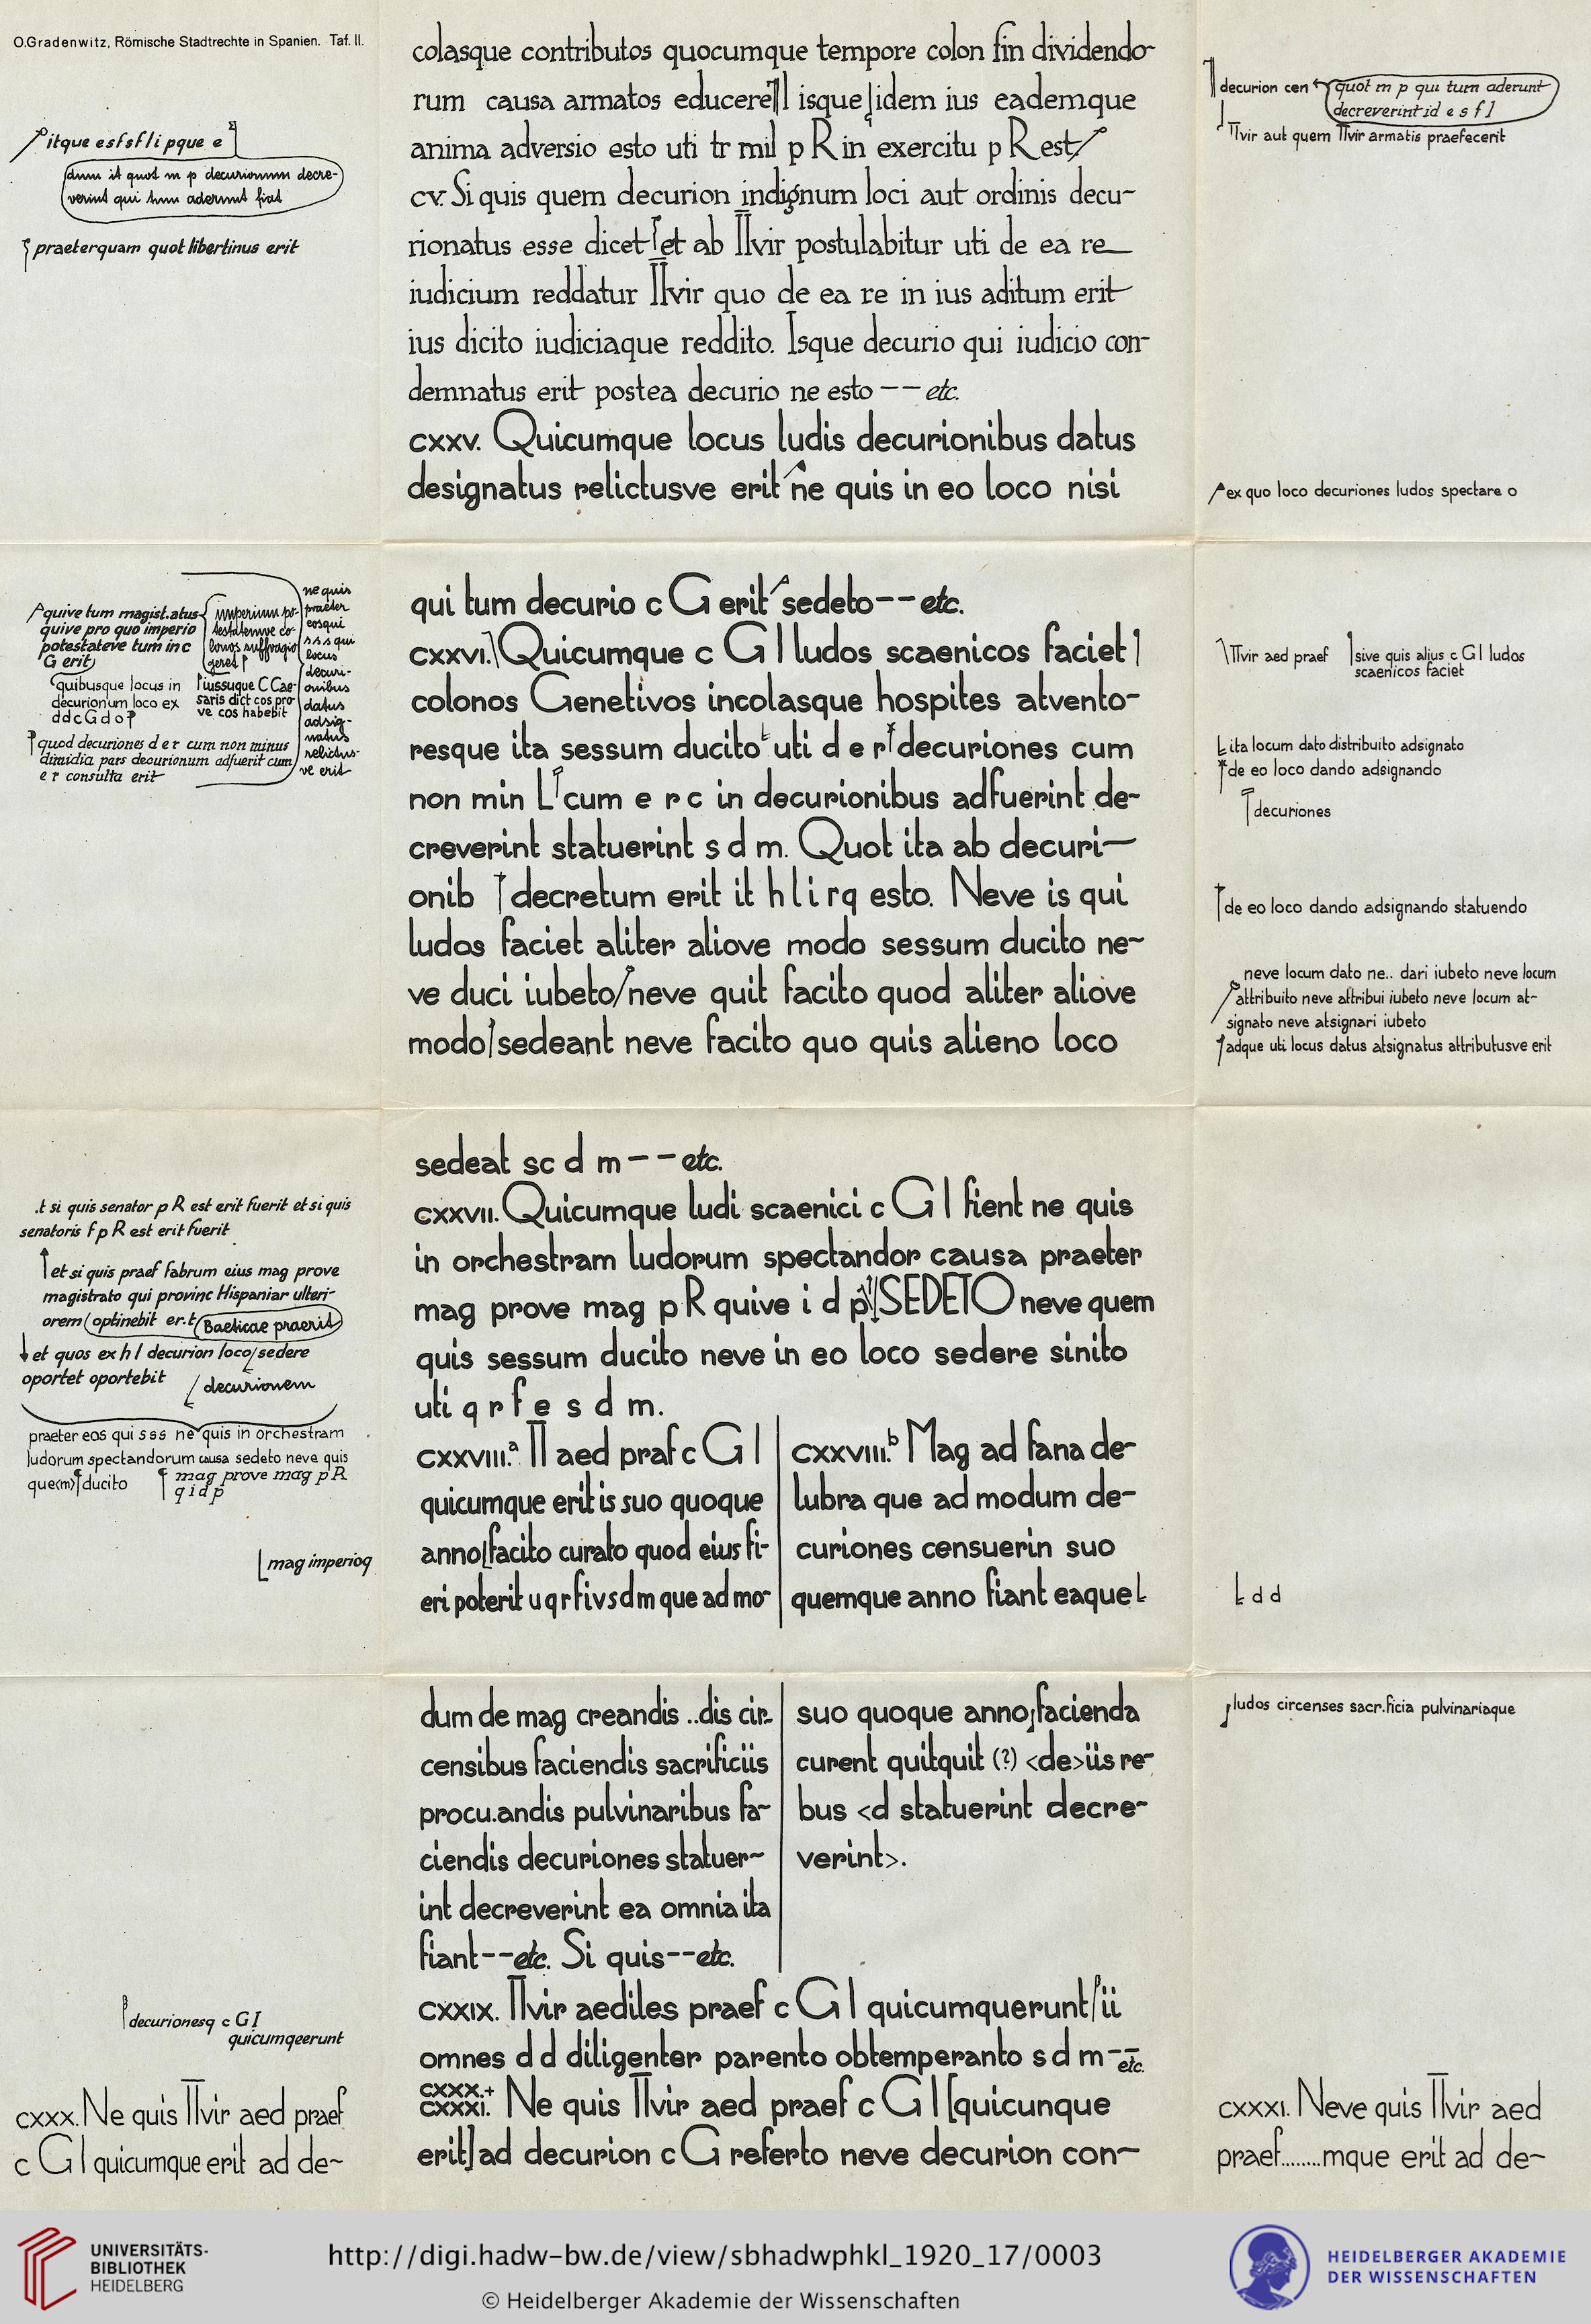 O.Gradenwitz, Römische Stadtrechte in Spanien. Taf. II.
itque e s f s f l i pque e
dum it quot m p decurionum decre-
verint qui tum aderunt fiat
praeterquam quot libertinus erit
colasque contributos quocumque tempore colon fin dividendo-
rum causa armatos educere isque idem ius eademque
anima adversio esto uti tr mil p R in exercitu p R est
cv. Si quis quem decurion indignum loci aut ordinis decu-
rionatus esse dicet et ab IIvir postulabitur uti de ea re
iudicium reddatur IIvir quo de ea re in ius aditum erit
ius dicito iudiciaque reddito. Isque decurio qui iudicio con-
demnatus erit postea decurio ne esto -- etc.
cxxv. Quicumque locus ludis decurionibus datus
designatus relictusve erit ne quis in eo loco nisi
decurion cen quot m p qui tum aderunt
decreverint id e s f
IIvir aut quem IIvir armatis praefecerit
ex quo loco decuriones ludos spectare o
quive tum magist.atus
quive pro quo imperio
potestateve tum in c
G erit
imperium po-
testatemve co-
lonos suffragio
geret
quibusque locus in
decurionum loco ex
d d c G d o
iussuque C Cae-
saris dict cos pro
ve cos habebit
quod decuriones d e r cum non minus
dimidia pars decurionum adfuerit cum
e r consulta erit
ne quis
praeter
eosqui
s s s qui
locus
decuri-
onibus
datus
adsig-
natus
relictus-
ve erit
qui tum decurio c G erit sedeto -- etc.
cxxvi. Quicumque c G I ludos scaenicos faciet
colonos Genetivos incolasque hospites atvento-
resque ita sessum ducito uti d e r decuriones cum
non min L cum e r c in decurionibus adfuerint de-
creverint statuerint s d m. Quot ita ab decuri-
onib decretum erit it h l i r q esto. Neve is qui
ludos faciet aliter aliove modo sessum ducito ne-
ve duci iubeto neve quit facito quod aliter aliove
modo sedeant neve facito quo quis alieno loco
IIvir aed praef sive quis alius c G I ludos
scaenicos faciet
ita locum dato distribuito adsignato
de eo loco dando adsignando
decuriones
de eo loco dando adsignando statuendo
neve locum dato ne.. dari iubeto neve locum
attribuito neve attribui iubeto neve locum at-
signato neve atsignari iubeto
adque uti locus datus atsignatus attributusve erit
.t si quis senator p R est erit fuerit et si quis
senatoris f p R est erit fuerit
et si quis praef fabrum eius mag prove
magistrato qui provinc Hispaniar ulteri-
orem optinebit er.t Baeticae praerit
et quos ex h l decurion loco sedere
oportet oportebit
decurionem
praeter eos qui s s s ne quis in orchestram
ludorum spectandorum causa sedeto neve quis
que(m) ducito mag prove mag p R
q i d p
mag imperioq
sedeat sc d m -- etc.
cxxvii. Quicumque ludi scaenici c G I fient ne quis
in orchestram ludorum spectandor causa praeter
mag prove mag p R quive i d p SEDETO neve quem
quis sessum ducito neve in eo loco sedere sinito
uti q r f e s d m.
cxxviii.a II aed praf c G I
quicumque erit is suo quoque
anno facito curato quod eius fi-
eri poterit u q r f i v s d m que ad mo-
cxxviii.b Mag ad fana de-
lubra que ad modum de-
curiones censuerin suo
quemque anno fiant eaque
d d
dum de mag creandis ..dis cir-
censibus faciendis sacrificiis
procu.andis pulvinaribus fa-
ciendis decuriones statuer-
int decreverint ea omnia ita
fiant -- etc. Si quis -- etc.
suo quoque anno facienda
curent quitquit (?) <de> iis re-
bus <d statuerint decre-
verint>.
ludos circenses sacr.ficia pulvinariaque
decurionesq c G I
quicumqeerunt
cxxix. IIvir aediles praef c G I quicumquerunt ii
omnes d d diligenter parento obtemperanto s d m -- etc.
cxxx.+
cxxxi. Ne quis IIvir aed praef c G I [quicunque
erit] ad decurion c G referto neve decurion con-
cxxx. Ne quis IIvir aed praef
c G I quicumque erit ad de-
cxxxi. Neve quis IIvir aed
praef........mque erit ad de-
UNIVERSITÄTS-
BIBLIOTHEK
HEIDELBERG
http://digi.hadw-bw.de/view/sbhadwphkl_1920_17/0003
© Heidelberger Akademie der Wissenschaften
HEIDELBERGER AKADEMIE
DER WISSENSCHAFTEN